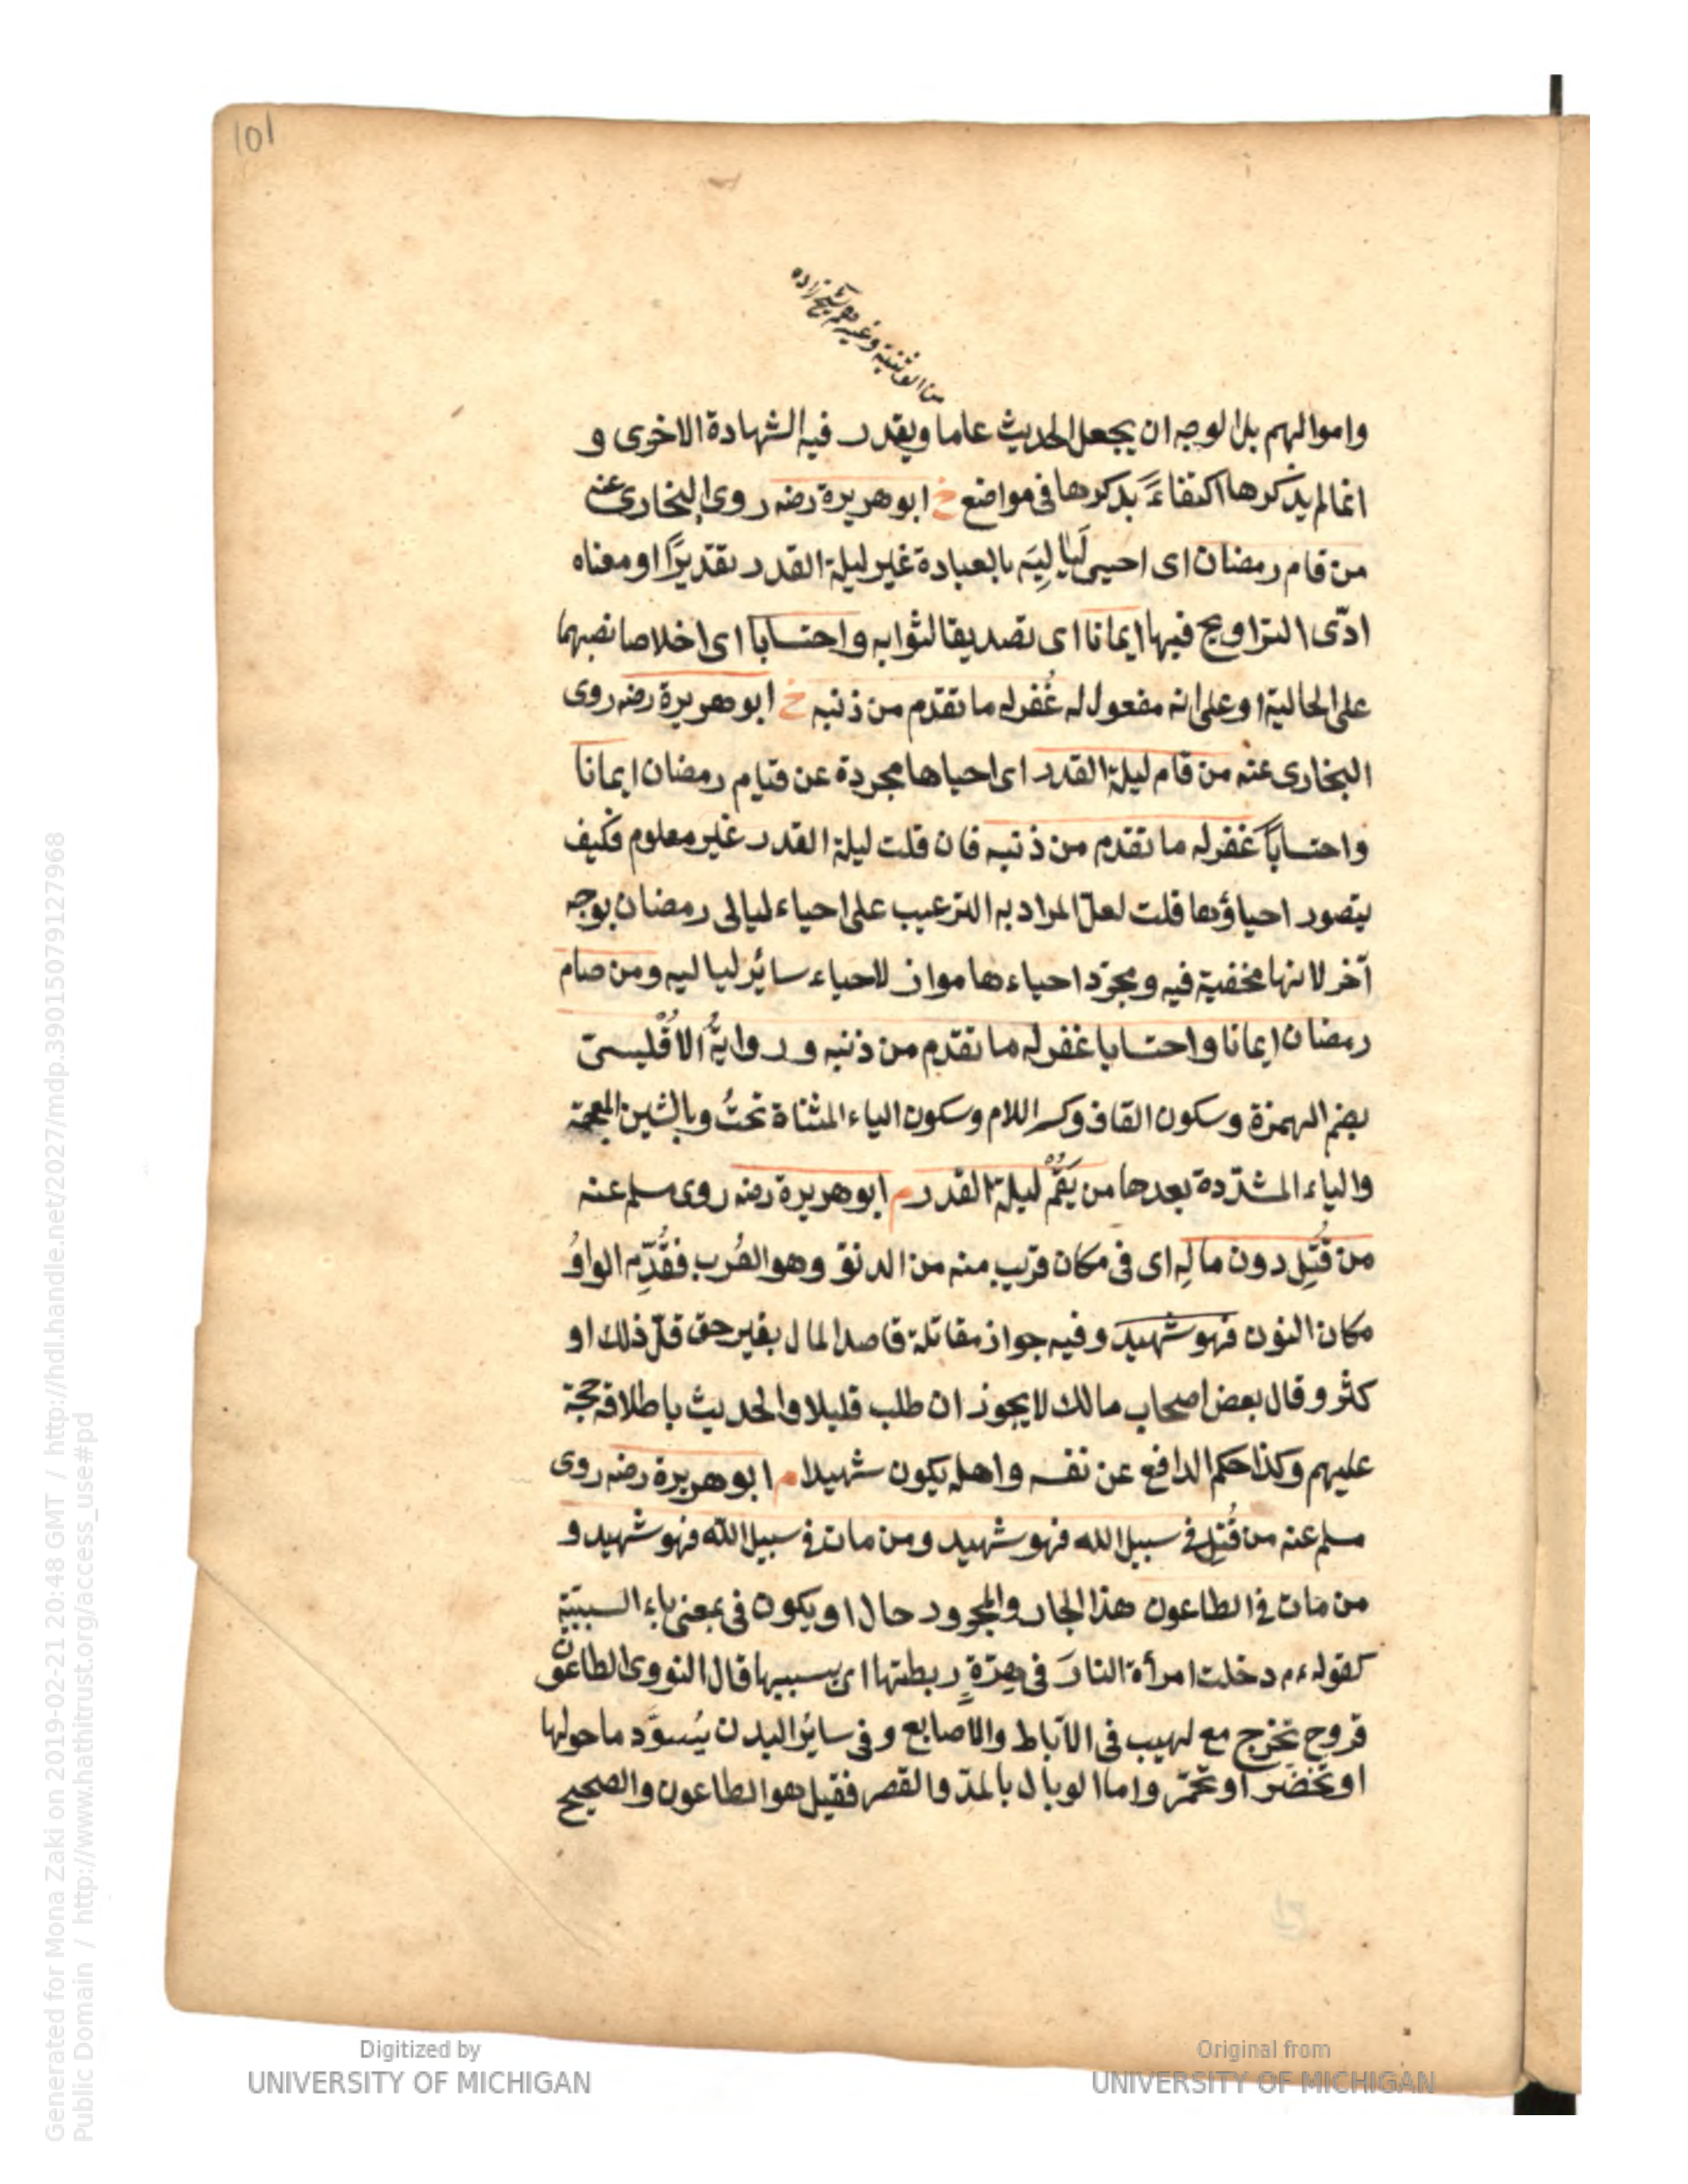 101
من الوثنية وغيرهم شيخ زاده
واموالهم بل الوجه ان يجعل الحديث عاما ويقدر فيه الشهادة الاخرى و
انما لم يذكرها اكتفاءً بذكرها فى مواضع خ ابو هريرة رضه روى البخارى عنه
من قام رمضان اى احيى لَيالِيَه بالعبادة غير ليلة القدر تقديرًا او معناه
ادّى التراويح فيها ايمانا اى تصديقا لثوابه واحتسابا اى اخلاصا نصبهما
على الحالية او على انه مفعول له غُفر له ما تقدّم من ذنبه خ ابو هريرة رضه روى
البخارى عنه من قام ليلة القدر اى احياها مجردة عن قيام رمضان ايمانا
واحتسابًا غفر له ما تقدّم من ذنبه فان قلت ليلة القدر غير معلوم فكيف
يتصور احياؤها قلت لعلّ المراد به الترغيب على احياء ليالى رمضان بوجه
آخر لانها مخفية فيه ومجرّد احياءها مواز لاحياء سائر لياليه ومن صام
رمضان ايمانا واحتسابا غفر له ما تقدّم من ذنبه ورواية الاُقْليسىّ
بضم الهمزة وسكون القاف وكسر اللام وسكون الياء المثناة تحتُ وبالشين المعجمة
والياء المشدّدة بعدها من يَقُمْ ليلة القدر م ابو هريرة رضه روى مسلم عنه
من قُتِل دون مالِه اى فى مكان قريب منه من الدنوّ وهو القُرب فقُدّم الواوُ
مكان النون فهو شهيد وفيه جواز مقاتلة قاصد المال بغير حق قلّ ذلك او
كثر وقال بعض اصحاب مالك لا يجوز ان طلب قليلا والحديث باطلاقه حجة
عليهم وكذا حكم الدافع عن نفسه واهله يكون شهيدا م ابو هريرة رضه روى
مسلم عنه من قُتِل فى سبيل الله فهو شهيد ومن مات فى سبيل الله فهو شهيد و
من مات فى الطاعون هذا الجار والمجرور حال او يكون فى بمعنى باء السببيّة
كقوله ءم دخلت امرأة النارَ فى هِرّةٍ ربطتها اى بسببها قال النووى الطاعون
قروح تخرج مع لهيب فى الآباط والاصابع وفى سائر البدن يُسوَّد ما حولها
او تخضرّ او تحمّر واما الوبال بالمدّ والقصر فقيل هو الطاعون والصحيح
Digitized by
UNIVERSITY OF MICHIGAN
Original from
UNIVERSITY OF MICHIGAN
Generated for Mona Zaki on 2019-02-21 20:48 GMT / http://hdl.handle.net/2027/mdp.39015079127968
Public Domain / http://www.hathitrust.org/access_use#pd